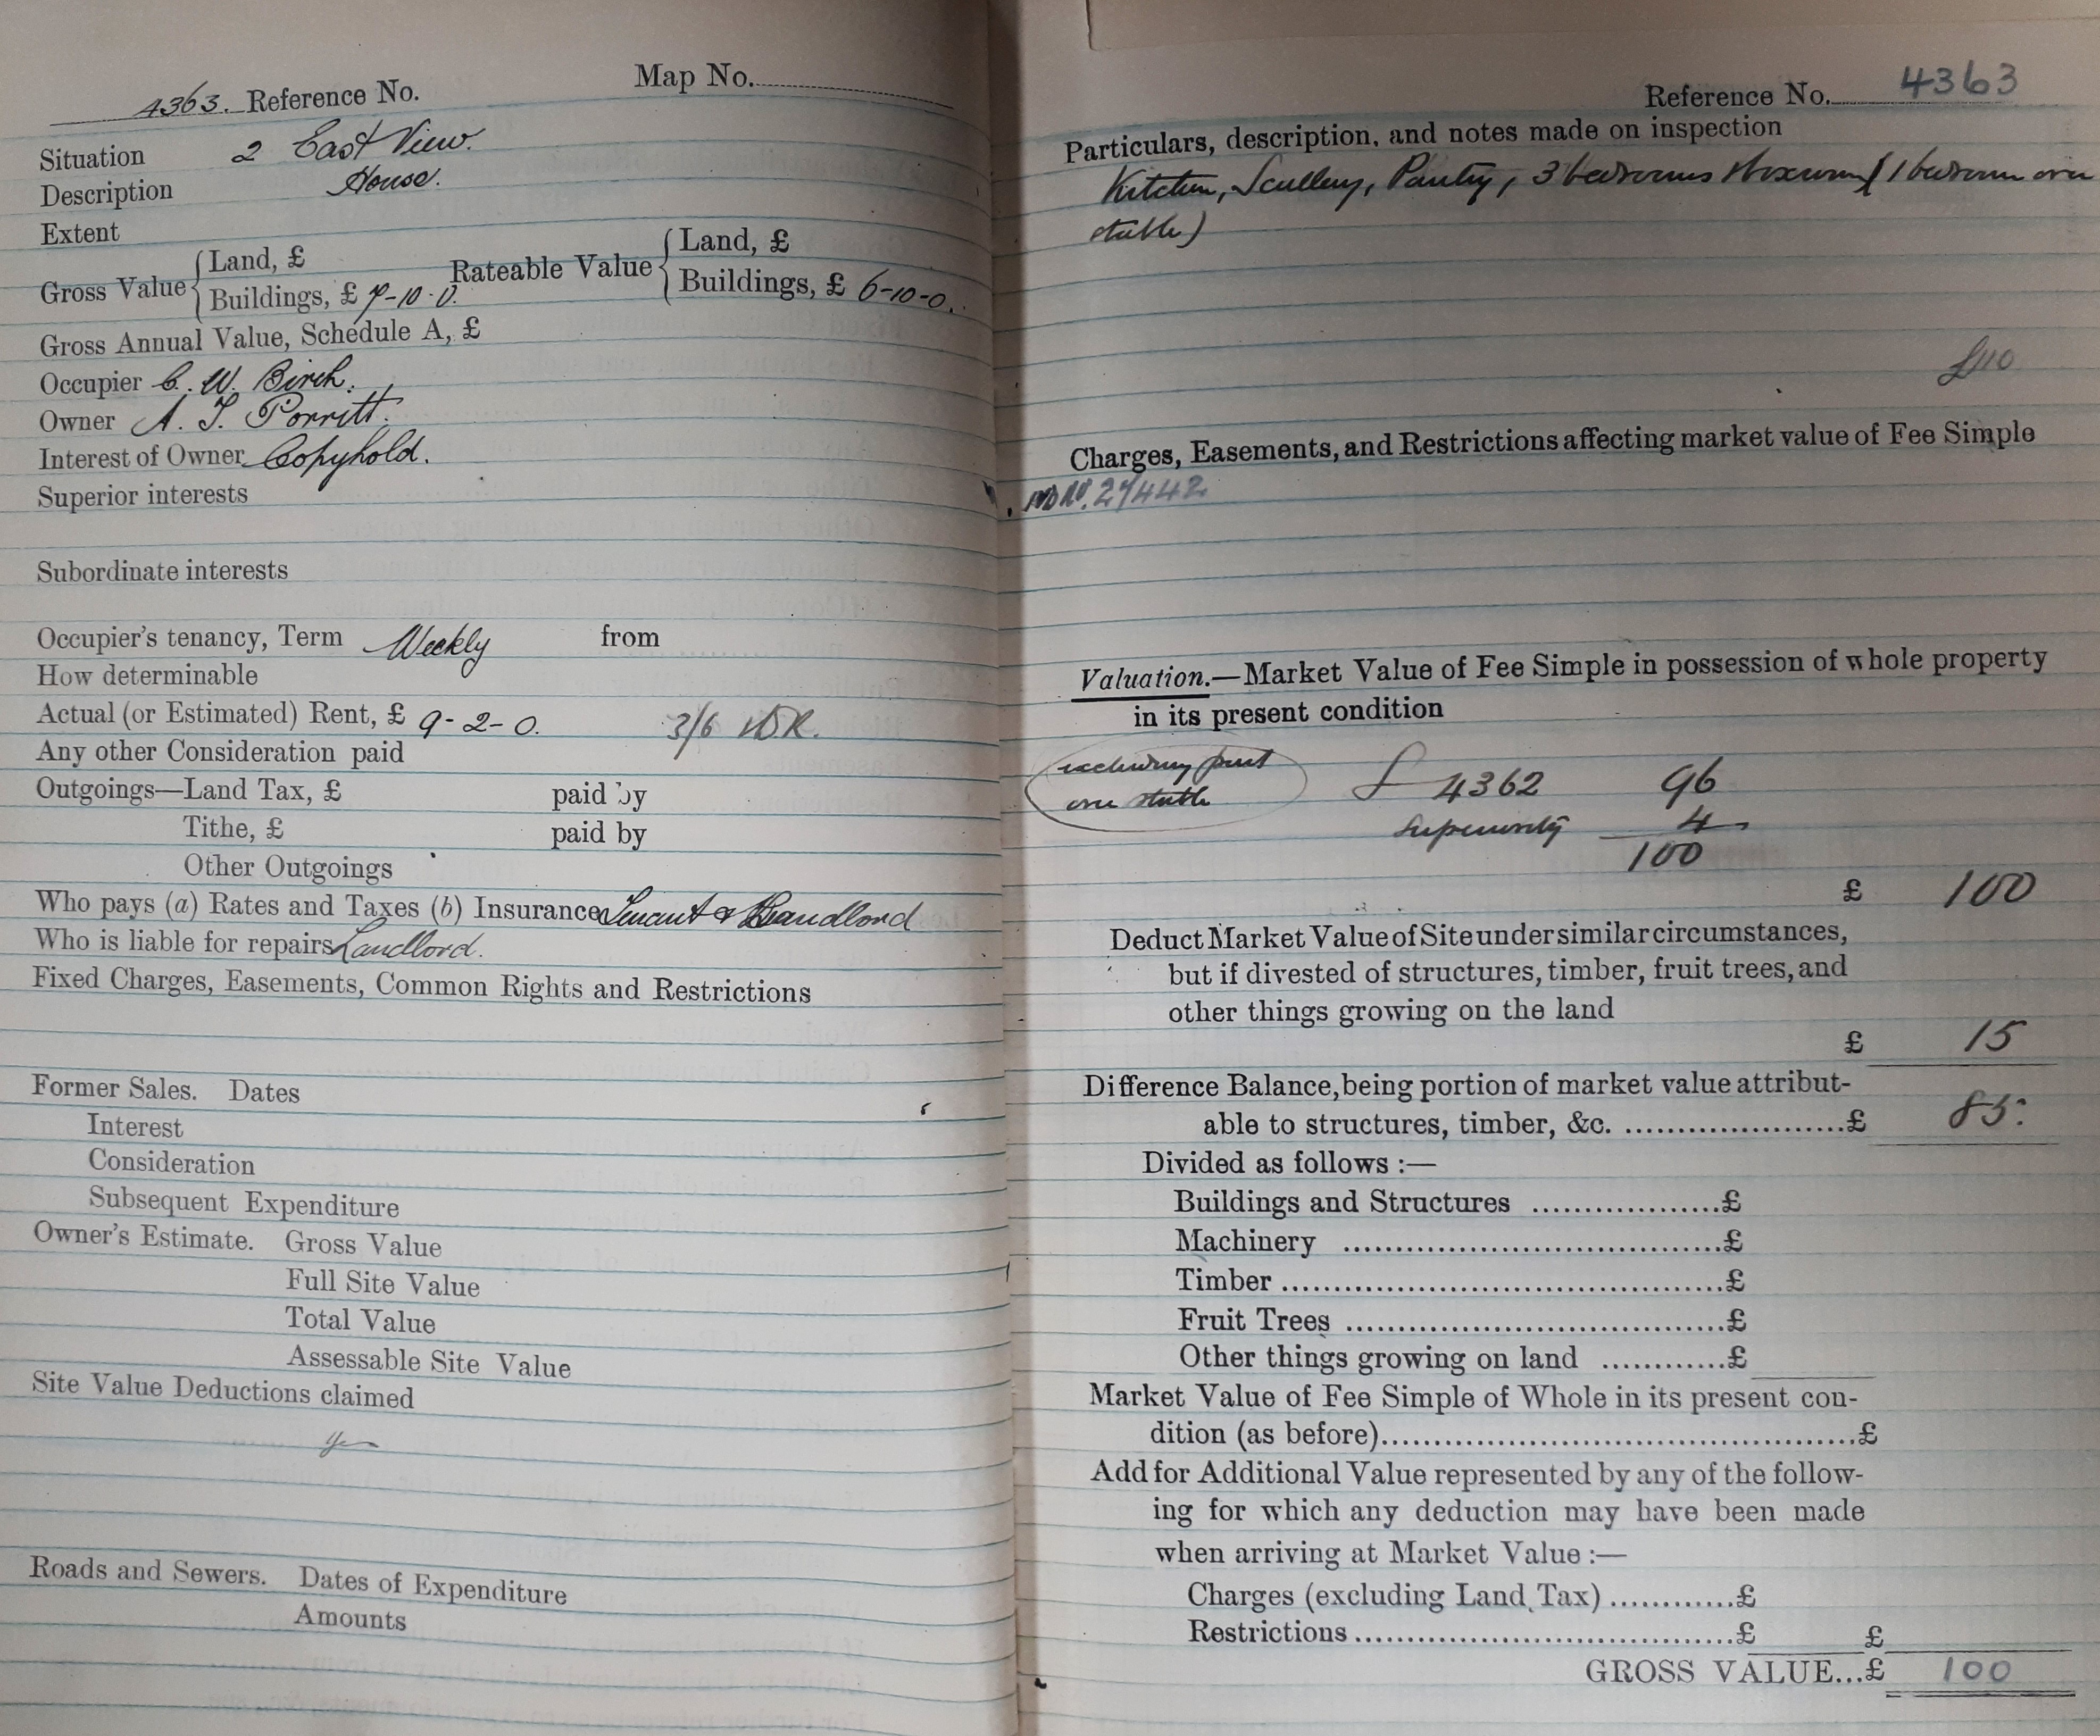 4363. Reference No. Map No.
Situation 2 East View.
Description House.
Extent
Gross Value { Land, £
Buildings, £ 7-10-0.
Rateable Value { Land, £
Buildings, £ 6-10-0.
Gross Annual Value, Schedule A, £
Occupier C. W. Birch.
Owner A. T. Porritt.
Interest of Owner Copyhold.
Superior interests
Subordinate interests
Occupier's tenancy, Term Weekly from
How determinable
Actual (or Estimated) Rent, £ 9-2-0. 3/6
Any other Consideration paid
Outgoings—Land Tax, £ paid by
Tithe, £ paid by
Other Outgoings
Who pays (a) Rates and Taxes (b) Insurance Tenant & Landlord
Who is liable for repairs Landlord.
Fixed Charges, Easements, Common Rights and Restrictions
Former Sales. Dates
Interest
Consideration
Subsequent Expenditure
Owner's Estimate. Gross Value
Full Site Value
Total Value
Assessable Site Value
Site Value Deductions claimed
Roads and Sewers. Dates of Expenditure
Amounts
Reference No. 4363
Particulars, description, and notes made on inspection
Kitchen, Scullery, Pantry, 3 bedrooms (1 bedroom over
stable)
£110
Charges, Easements, and Restrictions affecting market value of Fee Simple
No. 27442
Valuation.—Market Value of Fee Simple in possession of whole property
in its present condition
excluding part
over stable
£ 4362 96
Superiority 4
100
£ 100
Deduct Market Value of Site under similar circumstances,
but if divested of structures, timber, fruit trees, and
other things growing on the land
£ 15
Difference Balance, being portion of market value attribut-
able to structures, timber, &c. ......................£ 85:
Divided as follows :—
Buildings and Structures ...................£
Machinery ......................................£
Timber ............................................£
Fruit Trees ......................................£
Other things growing on land ............£
Market Value of Fee Simple of Whole in its present con-
dition (as before)................................................£
Add for Additional Value represented by any of the follow-
ing for which any deduction may have been made
when arriving at Market Value :—
Charges (excluding Land Tax) ............£
Restrictions ......................................£ £
GROSS VALUE...£ 100